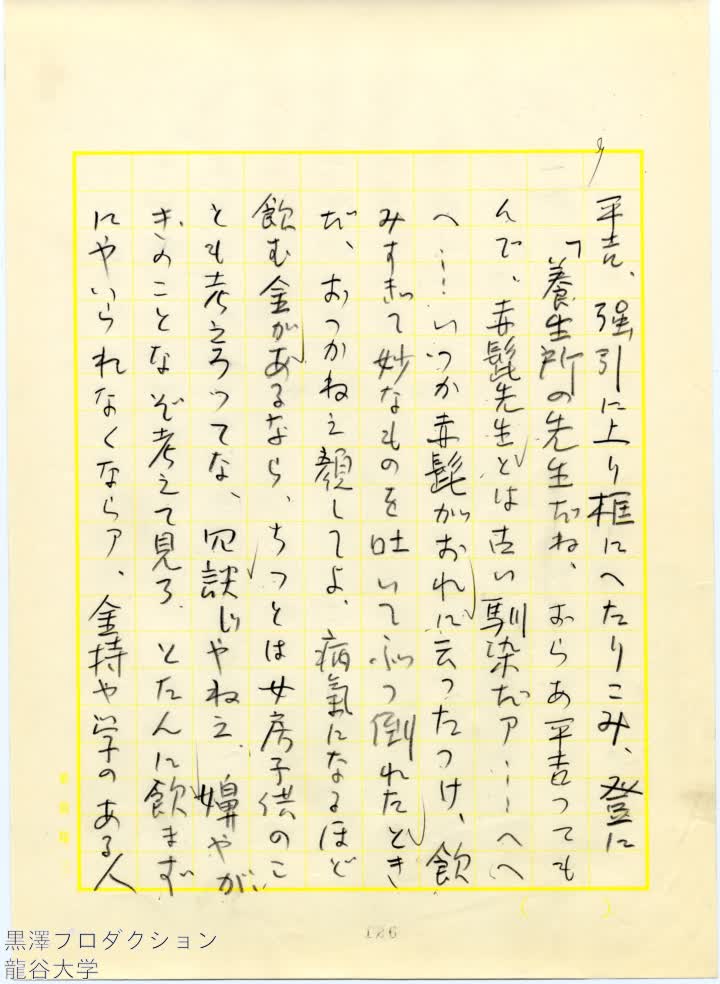 平吉、強引に上り框にへたりこみ、登に
「養生所の先生だね、おらあ平吉っても
んで、赤髭先生とは古い馴染だァ……へへ
へ……いつか赤髭がおれに云ったっけ、飲
みすぎて妙なものを吐いてぶっ倒れたとき
だ、おっかねえ顔してよ、病氣になるほど
飲む金があるなら、ちっとは女房子供のこ
とも考えろってな、冗談じゃねえ、嬶やが
きのことなぞ考えて見ろ、とたんに飲まず
にやいられなくならァ、金持や学のある人
126
黒澤プロダクション
龍谷大学